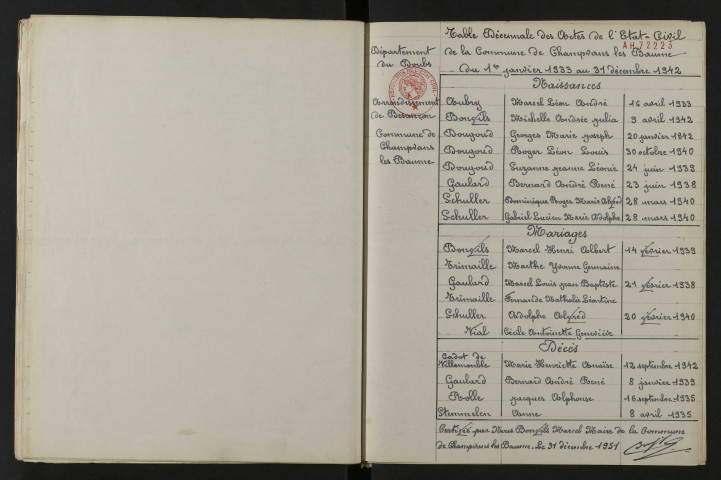 Table Décennale des Actes de l'Etat-Civil
de la Commune de Champvans les Baume
AH 72223
du 1er janvier 1933 au 31 décembre 1942
Département
du Doubs
Arrondissement
de Besançon
Commune de
Champvans
les Baume
Naissances
Aubry Marcel Léon André 16 avril 1933
Bonfils Michelle Andrée Julia 9 avril 1942
Bougoud Georges Marie Joseph 20 janvier 1842
Bougoud Roger Léon Louis 30 octobre 1940
Bougoud Suzanne Jeanne Léonie 24 juin 1938
Gaulard Bernard André René 23 juin 1938
Schuller Dominique Roger Marie Alfred 28 mars 1940
Schuller Gabriel Lucien Marie Adolphe 28 mars 1940
Mariages
Bonfils Marcel Henri Albert 14 février 1939
Trimaille Marthe Yvonne Germaine
Gaulard Marcel Louis Jean Baptiste 21 février 1938
Trimaille Fernande Nathalie Léontine
Schuller Adolphe Alfred 20 février 1940
Vial Cécile Antoinette Geneviève
Décès
Cadot de
Villemomble Marie Henriette Anaïse 12 septembre 1942
Gaulard Bernard André René 8 janvier 1939
Rolle Jacques Alphonse 16 septembre 1935
Stemmelen Anne 8 avril 1935
Certifié par Nous Bonfils Marcel Maire de la Commune
de Champvans les Baume. Le 31 décembre 1951